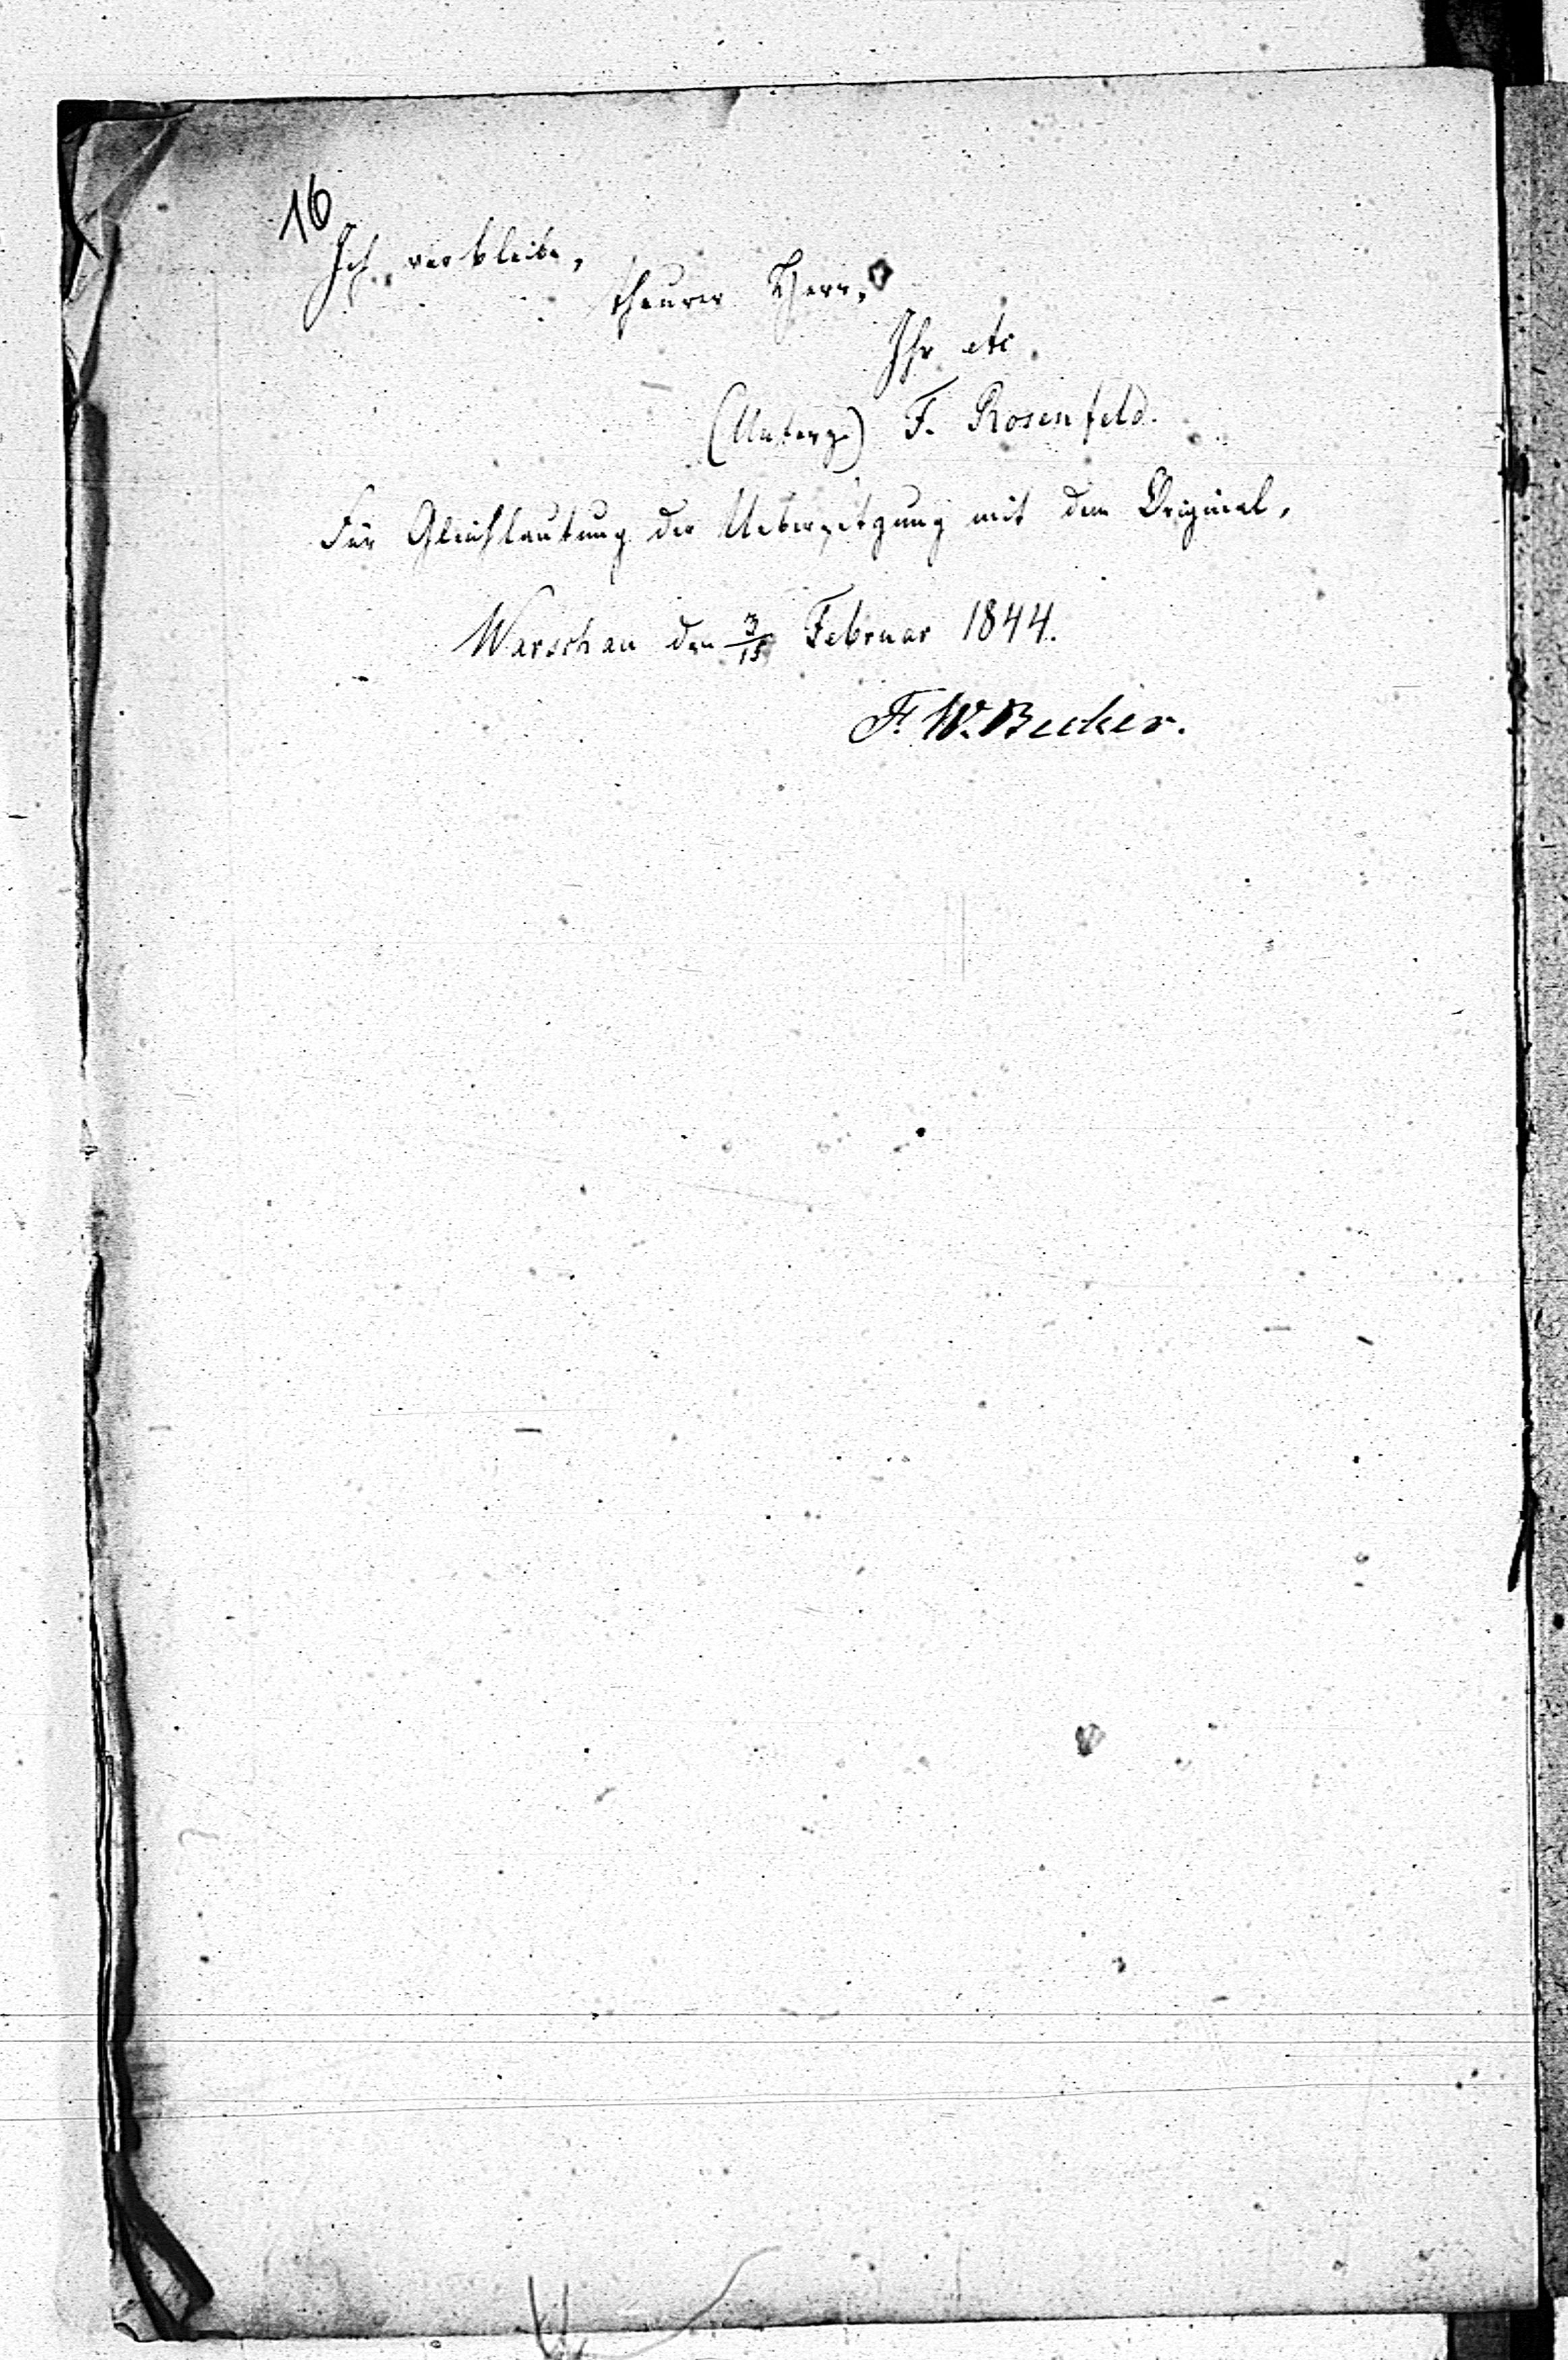 16
Ich verbleibe,
theurer Herr,
Ihr etc.
(Unterz.) F. Rosenfeld.
Für Gleichlautung der Uebersetzung mit dem Original,
Warschau den 3/15 Februar 1844.
F. W. Becker.